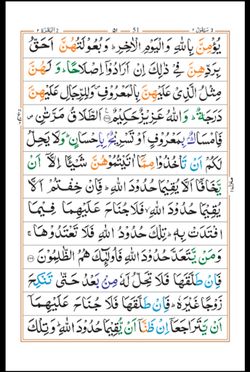 يُؤْمِنَّ بِاللّٰهِ وَالْيَوْمِ الْاٰخِرِ ؕ وَبُعُوْلَتُهُنَّ اَحَقُّ
بِرَدِّهِنَّ فِيْ ذٰلِكَ اِنْ اَرَادُوْۤا اِصْلَاحًا ؕ وَلَهُنَّ
مِثْلُ الَّذِيْ عَلَيْهِنَّ بِالْمَعْرُوْفِ وَلِلرِّجَالِ عَلَيْهِنَّ
دَرَجَةٌ ؕ وَاللّٰهُ عَزِيْزٌ حَكِيْمٌ اَلطَّلَاقُ مَرَّتٰنِ
فَاِمْسَاكٌۢ بِمَعْرُوْفٍ اَوْ تَسْرِيْحٌۢ بِاِحْسَانٍ ؕ وَلَا يَحِلُّ
لَكُمْ اَنْ تَاْخُذُوْا مِمَّاۤ اٰتَيْتُمُوْهُنَّ شَيْـًٔا اِلَّاۤ اَنْ
يَّخَافَاۤ اَلَّا يُقِيْمَا حُدُوْدَ اللّٰهِ ؕ فَاِنْ خِفْتُمْ اَلَّا
يُقِيْمَا حُدُوْدَ اللّٰهِ ۙ فَلَا جُنَاحَ عَلَيْهِمَا فِيْمَا
افْتَدَتْ بِهٖ ؕ تِلْكَ حُدُوْدُ اللّٰهِ فَلَا تَعْتَدُوْهَا ۚ
وَمَنْ يَّتَعَدَّ حُدُوْدَ اللّٰهِ فَاُولٰٓئِكَ هُمُ الظّٰلِمُوْنَ
فَاِنْ طَلَّقَهَا فَلَا تَحِلُّ لَهٗ مِنْۢ بَعْدُ حَتّٰى تَنْكِحَ
زَوْجًا غَيْرَهٗ ؕ فَاِنْ طَلَّقَهَا فَلَا جُنَاحَ عَلَيْهِمَاۤ
اَنْ يَّتَرَاجَعَاۤ اِنْ ظَنَّاۤ اَنْ يُّقِيْمَا حُدُوْدَ اللّٰهِ ؕ وَتِلْكَ